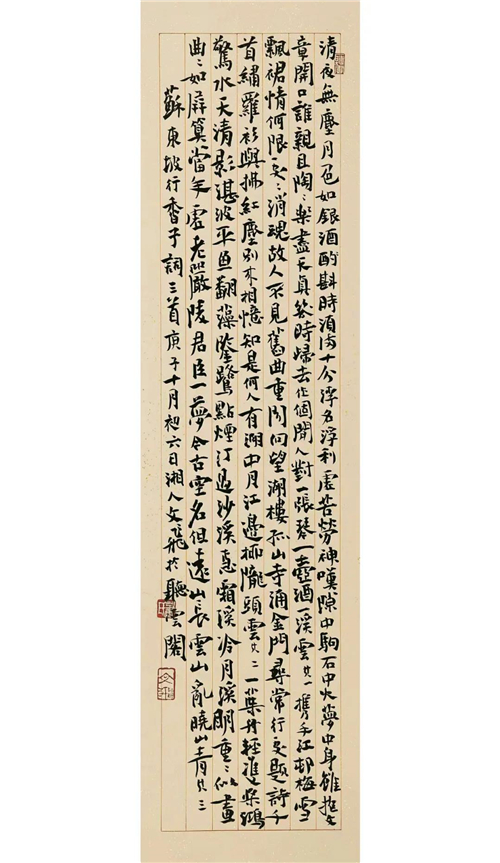 清夜無塵月色如銀酒酌斟時須滿十分浮名浮利虛苦勞神嘆隙中駒石中火夢中身雖抱文
章開口誰親且陶〻樂盡天真幾時歸去作個閒人對一張琴一壺酒一溪雲其一攜手江邨梅雪
飄裙情何限處〻消魂故人不見舊曲重聞向望湖樓孤山寺涌金門尋常行處題詩千
首繡羅衫與拂紅塵別來相憶知是何人有湖中月江邊柳隴頭雲其二一葉舟輕雙槳鴻
驚水天清影湛波平魚翻藻鑒鷺點煙汀過沙溪急霜溪冷月溪明重〻似畫
曲〻如屏算當年虛老嚴陵君臣一夢今古空名但遠山長雲山亂曉山青其三
蘇東坡行香子詞三首庚子十月初六日湘人文飛於聽雲閣